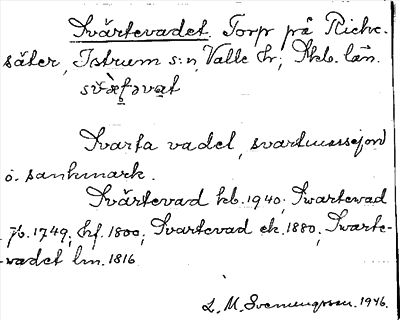 Svärtevadet. Torp på Riche-
säter, Istrum s:n, Valle hr; Skb. län.
Svarta vadet, svartmussejord
o. sankmark.
Svärtevad hb. 1940; Swartevad
jb. 1749; hf. 1800; Svartevad ek. 1880; Svarte-
vadet lm. 1816.
L. M. Svennungsson. 1946.